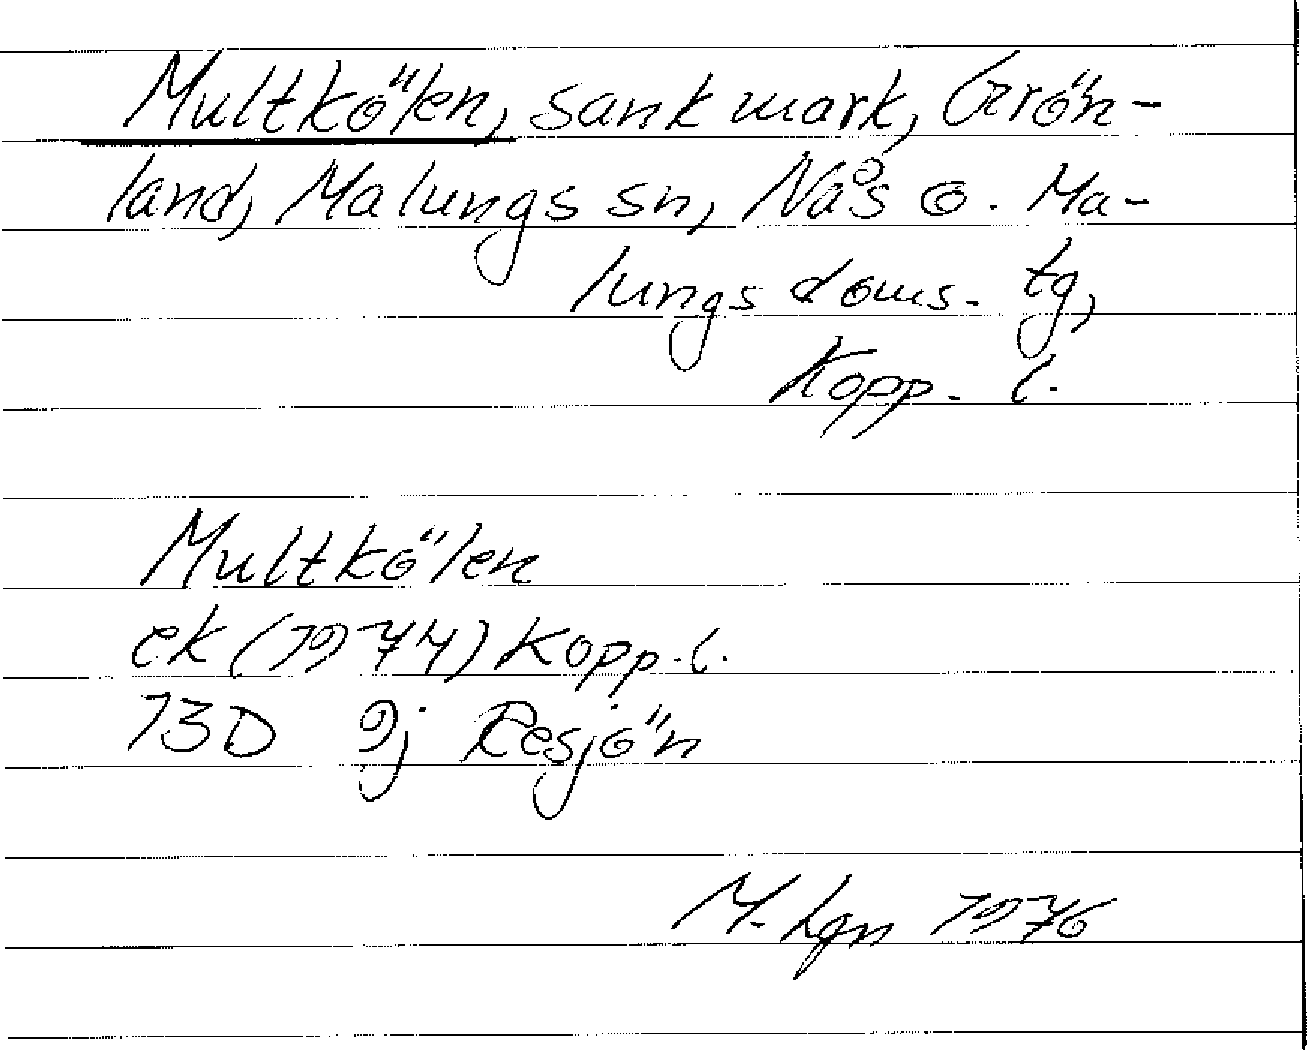 Multkölen, sankmark, Grön-
land, Malungs sn, Nås o. Ma-
lungs doms. tg,
Kopp. l.
Multkölen
ek (1974) Kopp. l.
13D 9j Resjön
M. Lgn 1976